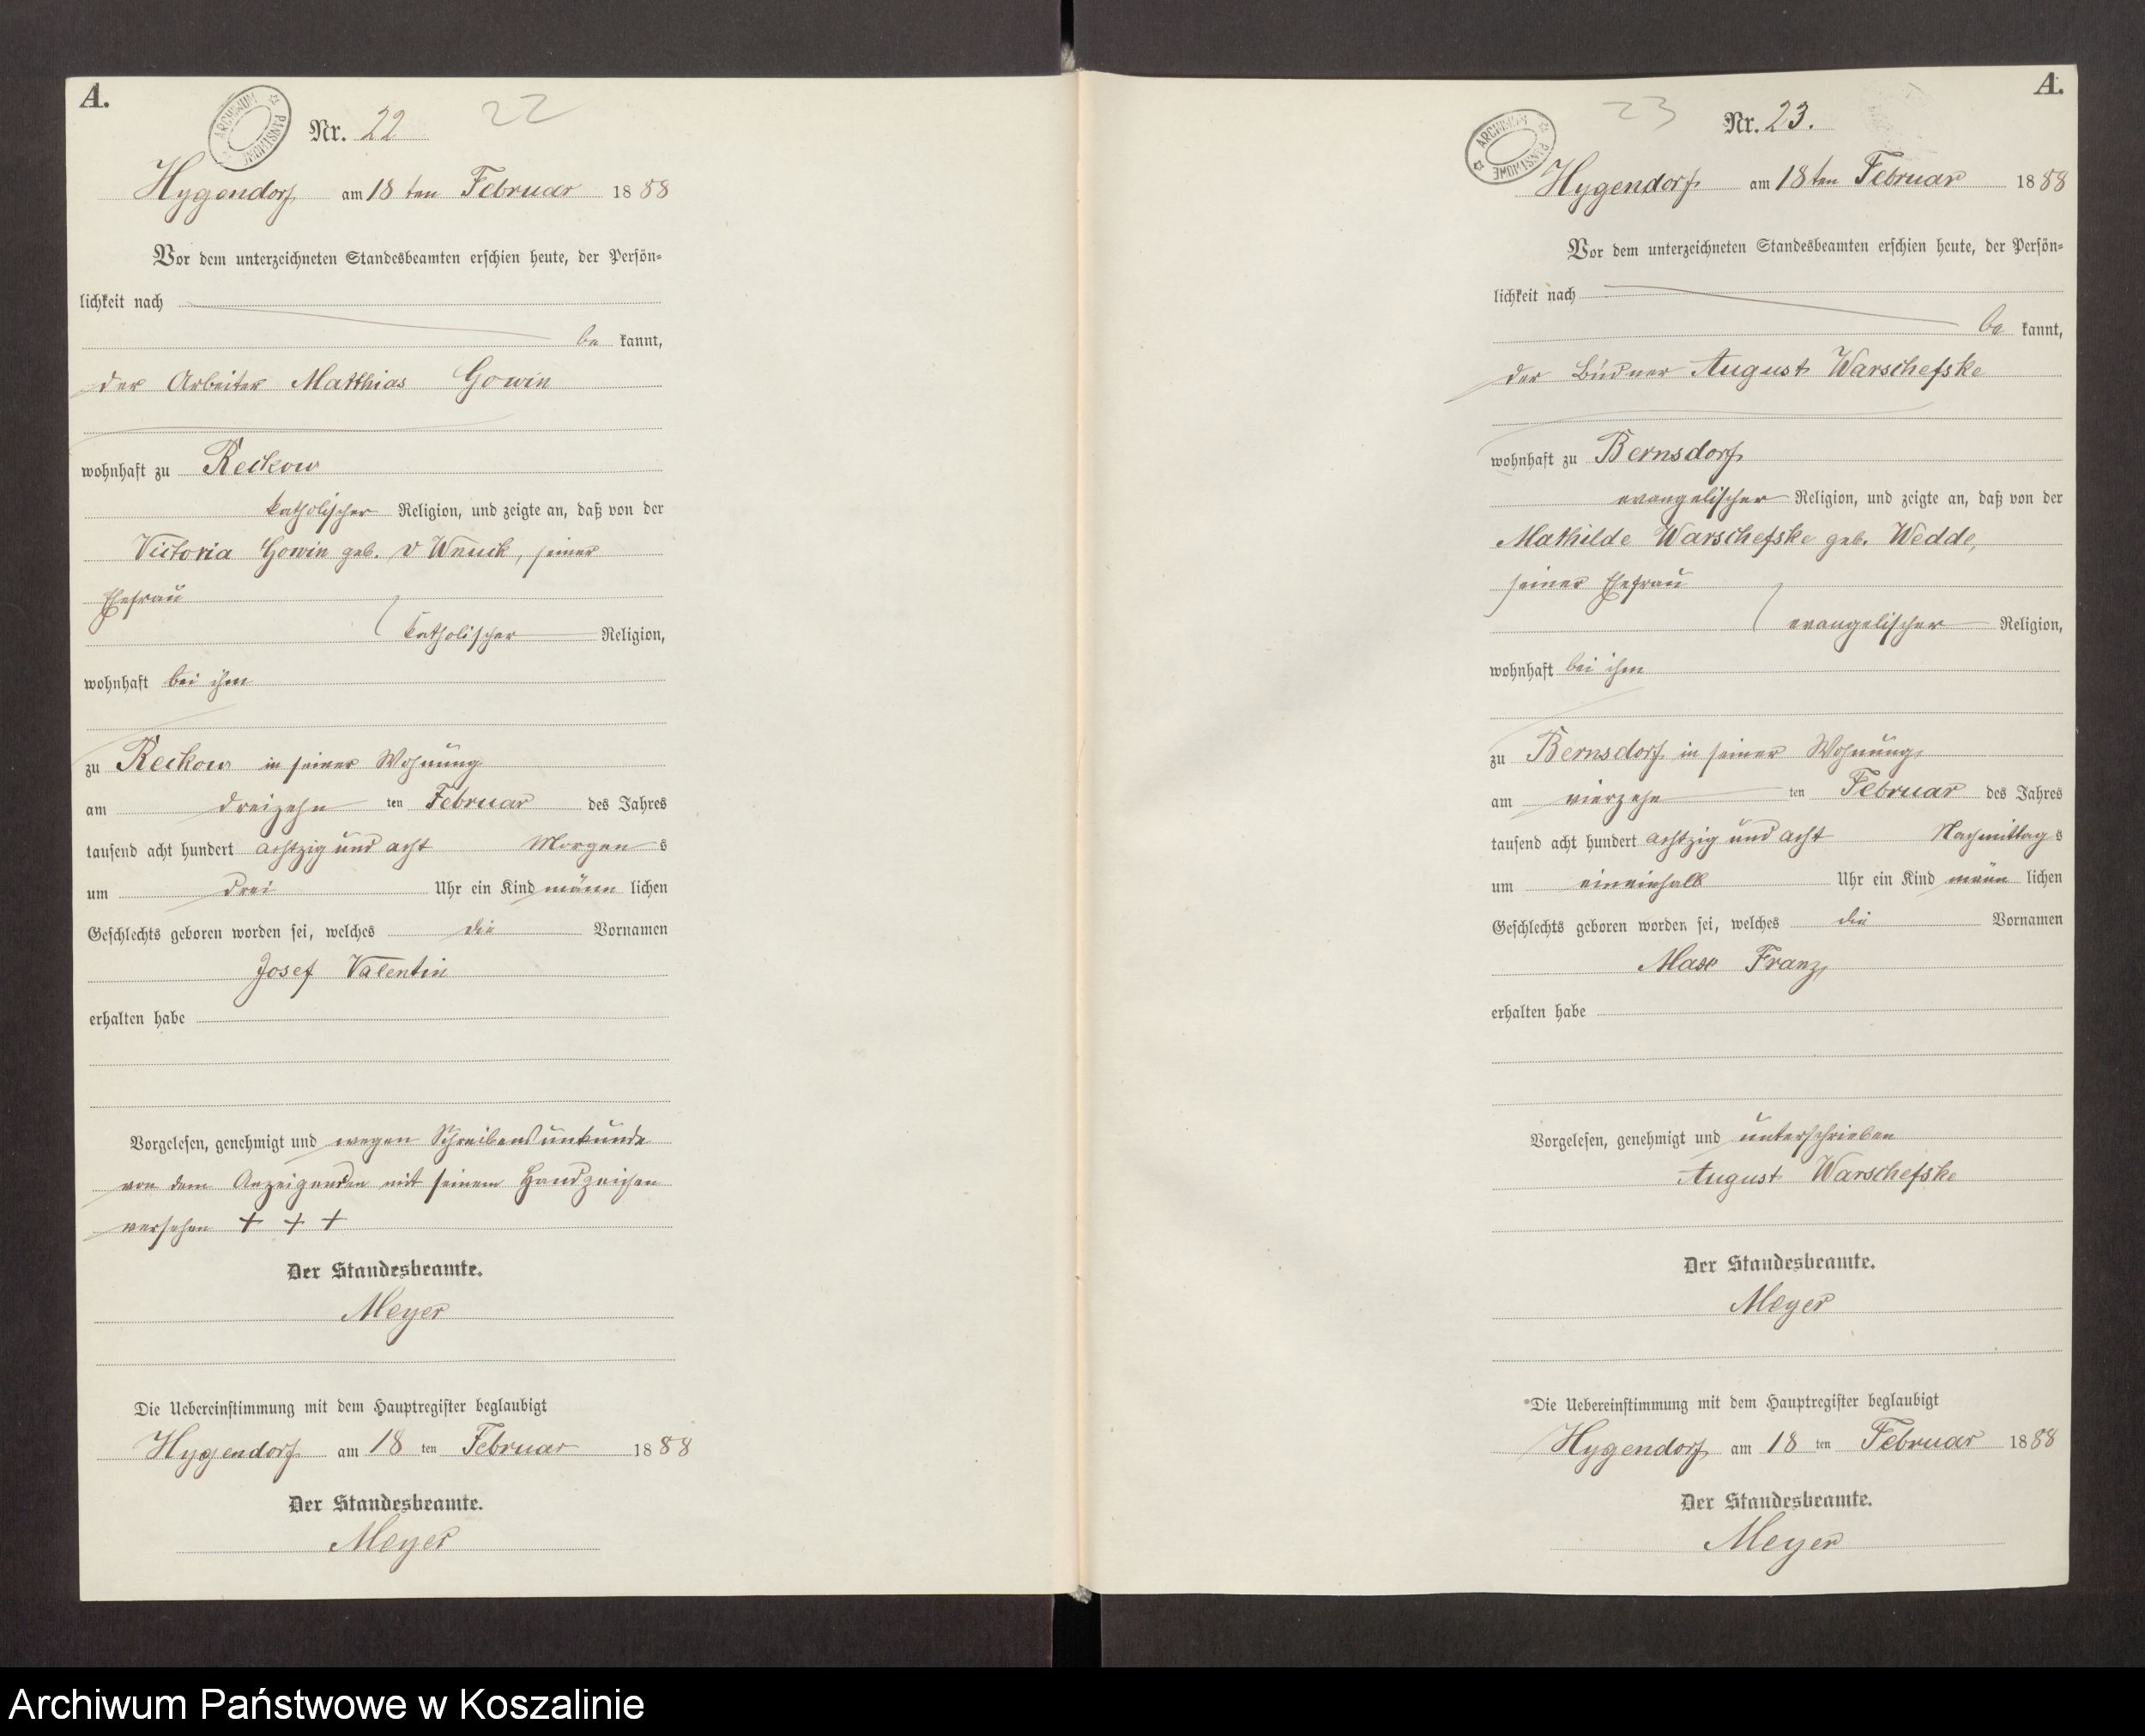 A.
ARCHIWUM PAŃSTWOWE
Nr. 22
22
Hygendorf am 18 ten Februar 1888
Vor dem unterzeichneten Standesbeamten erschien heute, der Persön-
lichkeit nach
be kannt,
der Arbeiter Matthias Gowin
wohnhaft zu Reckow
katholischer Religion, und zeigte an, daß von der
Victoria Gowin geb. v Wnuck, seiner
Ehefrau
katholischer Religion,
wohnhaft bei ihm
zu Reckow in seiner Wohnung
am dreizehn ten Februar des Jahres
tausend acht hundert achtzig und acht Morgen s
um drei Uhr ein Kind männ lichen
Geschlechts geboren worden sei, welches die Vornamen
Josef Valentin
erhalten habe
Vorgelesen, genehmigt und wegen Schreibensunkunde
von dem Anzeigenden mit seinem Handzeichen
versehen + + +
Der Standesbeamte.
Meyer
Die Uebereinstimmung mit dem Hauptregister beglaubigt
Hygendorf am 18 ten Februar 1888
Der Standesbeamte.
Meyer
A.
ARCHIWUM PAŃSTWOWE
23
Nr. 23.
Hygendorf am 18 ten Februar 1888
Vor dem unterzeichneten Standesbeamten erschien heute, der Persön-
lichkeit nach
be kannt,
der Büdner August Warschefske
wohnhaft zu Bernsdorf
evangelischer Religion, und zeigte an, daß von der
Mathilde Warschefske geb. Wedde,
seiner Ehefrau
evangelischer Religion,
wohnhaft bei ihm
zu Bernsdorf in seiner Wohnung
am vierzehn ten Februar des Jahres
tausend acht hundert achtzig und acht Nachmittag s
um eineinhalb Uhr ein Kind männ lichen
Geschlechts geboren worden sei, welches die Vornamen
Max Franz
erhalten habe
Vorgelesen, genehmigt und unterschrieben
August Warschefske
Der Standesbeamte.
Meyer
Die Uebereinstimmung mit dem Hauptregister beglaubigt
Hygendorf am 18 ten Februar 1888
Der Standesbeamte.
Meyer
Archiwum Państwowe w Koszalinie